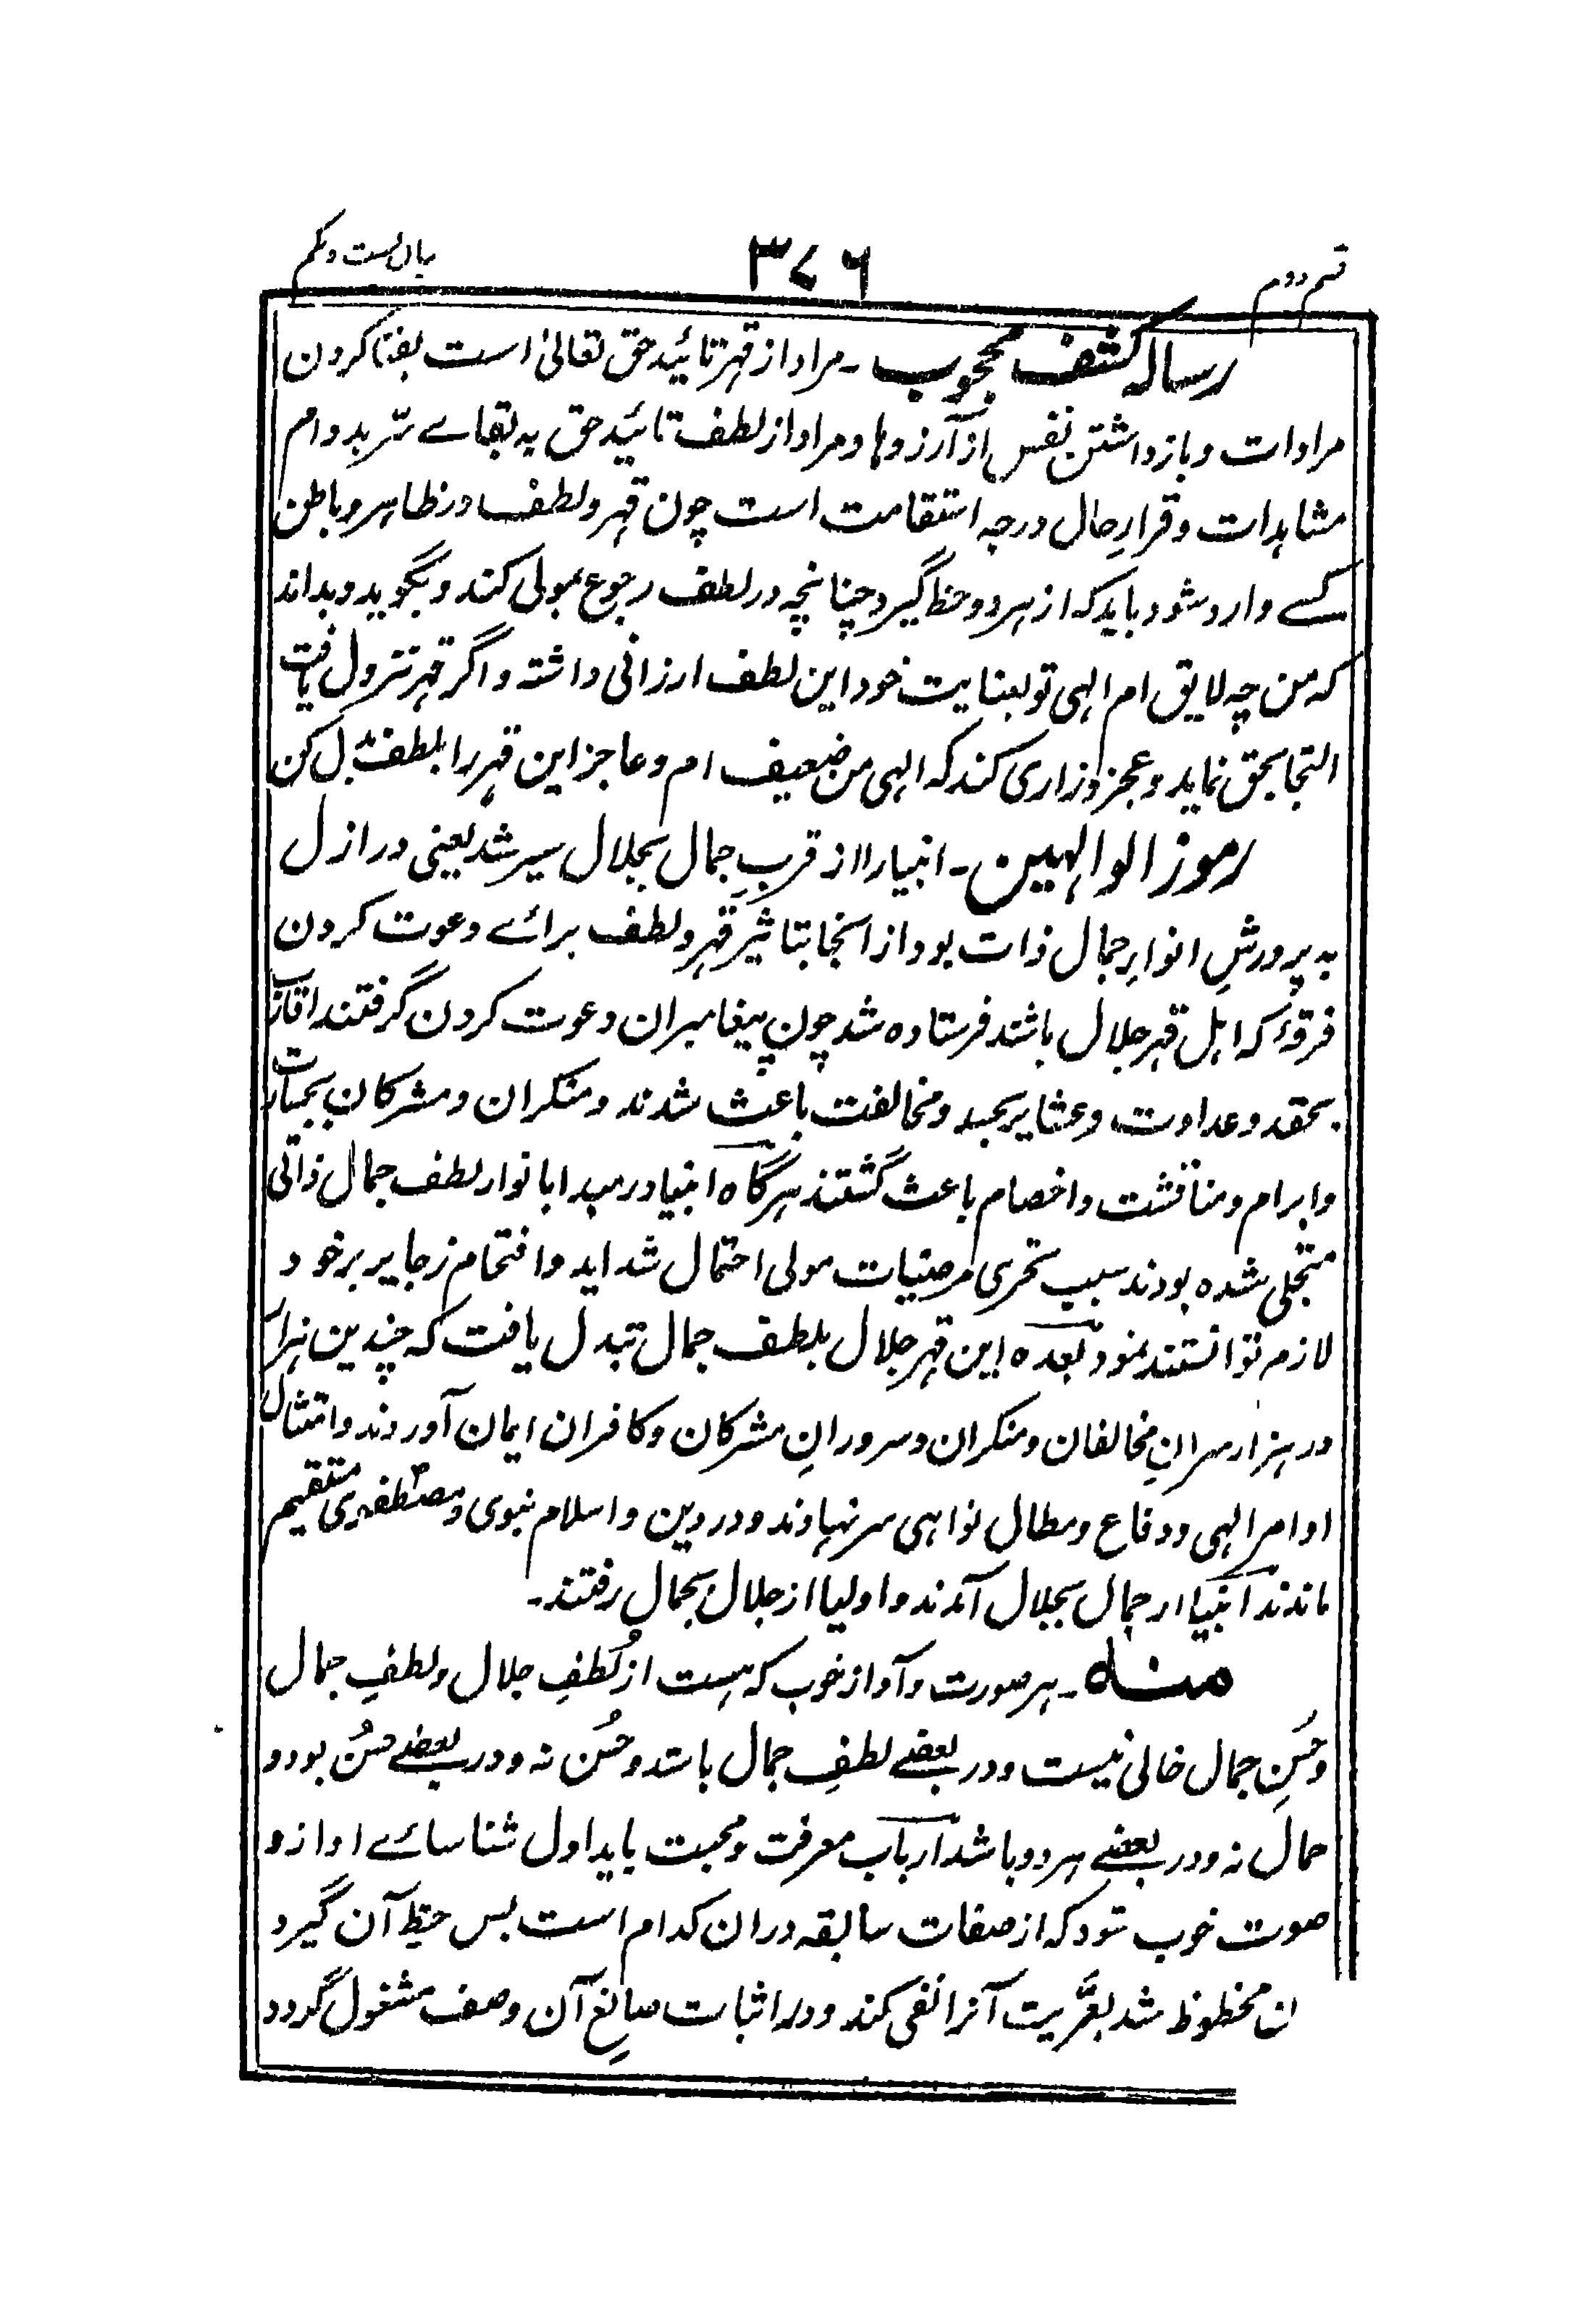 قسم دوم ۳۷۶ بیان بست و یکم
رسالہ کشف محجوب ـ مراد از قہر تائید حق تعالیٰ است بفنا کردن
مرادات و بازداشتن نفس از آرزوہا و مراد از لطف تائید حق بہ بقاے سّر بدوام
مشاہدات و قرارِ حال درجہ استقامت است چون قہر و لطف در ظاہر و باطن
کسے وارد شود باید کہ از ہر دو حظ گیرد چنانچہ در لطف رجوع بمولی کند و بگوید و بداند
کہ من چہ لایق ام الہی تو بعنایت خود این لطف ارزانی داشتہ و اگر قہر نزول یافت
التجا بحق نماید و عجز و زاری کند کہ الہی من ضعیف ام و عاجز این قہر را بلطف بدل کن
رموز الوالہین ـ انبیا را از قربِ جمال بجلال سیر شد یعنی در ازل
بہ پرورشِ انوارِ جمال ذات بود از انجا بتاثیر قہر و لطف براے دعوت کردن
فرقۂ کہ اہل قہر جلال باشند فرستادہ شد چون پیغامبران دعوت کردن گرفتند اقارب
بحقد و عداوت و عشایر بحسد و مخالفت باعث شدند و منکران و مشرکان
و ابرام و مناقشت و اخصام باعث گشتند ہرگاہ انبیا در مبدا بانوار لطف جمال ذاتی
متجلی شدہ بودند سبب تحری مرضیات مولی احتمال شداید و اقتحام زجایر برخود
لازم توانستند نمود بعدہ این قہر جلال بلطف جمال تبدل یافت کہ چندین ہزار
در ہزار سرانِ مخالفان و منکران و سرورانِ مشرکان و کافران ایمان آوردند و امتثال
اوامر الہی و دفاع و مطال نواہی سر نہادند و در دین و اسلام نبوی و مصطفوی مستقیم
ماندند انبیا از جمال بجلال آمدند و اولیا از جلال بجمال رفتند ـ
منہ ـ ہر صورت و آواز خوب کہ ہست از لُطفِ جلال و لطفِ جمال
و حُسنِ جمال خالی نیست و در بعضے لطفِ جمال باشد و حُسن نہ و در بعضے حسنُ بود و
جمال نہ و در بعضے ہر دو باشد ارباب معرفت و محبت باید اول شناساے اواز و
صوت خوب شود کہ از صفات سابقہ دران کدام است بس حظِ آن گیرد
ان محظوظ شد آنرا نفی کند و در اثبات صانع آن وصف مشغول گردد